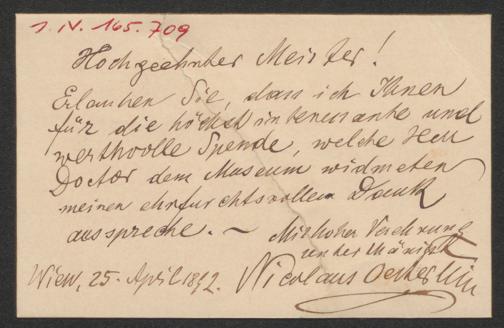 I. N. 165.709
Hochgeehrter Meister!
Erlauben Sie, dass ich Ihnen
für die höchst interessante und
werthvolle Spende, welche Herr
Doctor dem Museum widmeten
meinen ehrfurchtsvollen Dank
ausspreche. — Mit hoher Verehrung
unterthänigst
Wien, 25. April 1892. Nicolaus Oesterlein